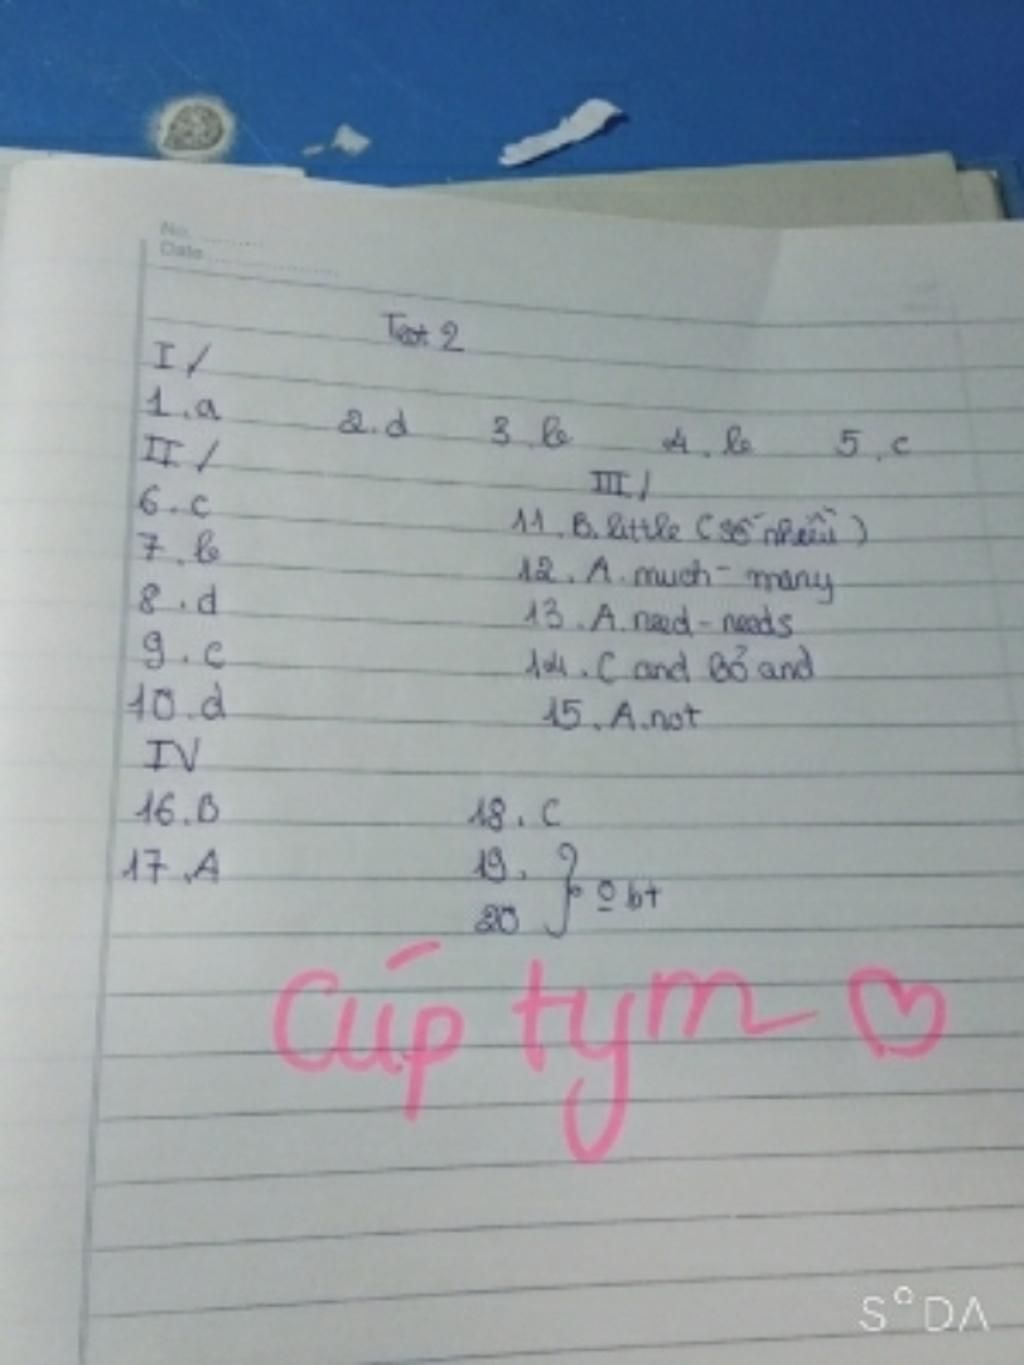 No.
Date
Test 2
I/
1.a 2.d 3.b 4.b 5.c
II/
III/
6.c
11.B.little (số nhiều)
7.b
12.A.much-many
8.d
13.A.need-needs
9.c
14.C and Bỏ and
10.d
15.A.not
IV
16.B 18.C
17.A 19.
20 } o bt
Cúp tym ♡
S°DA